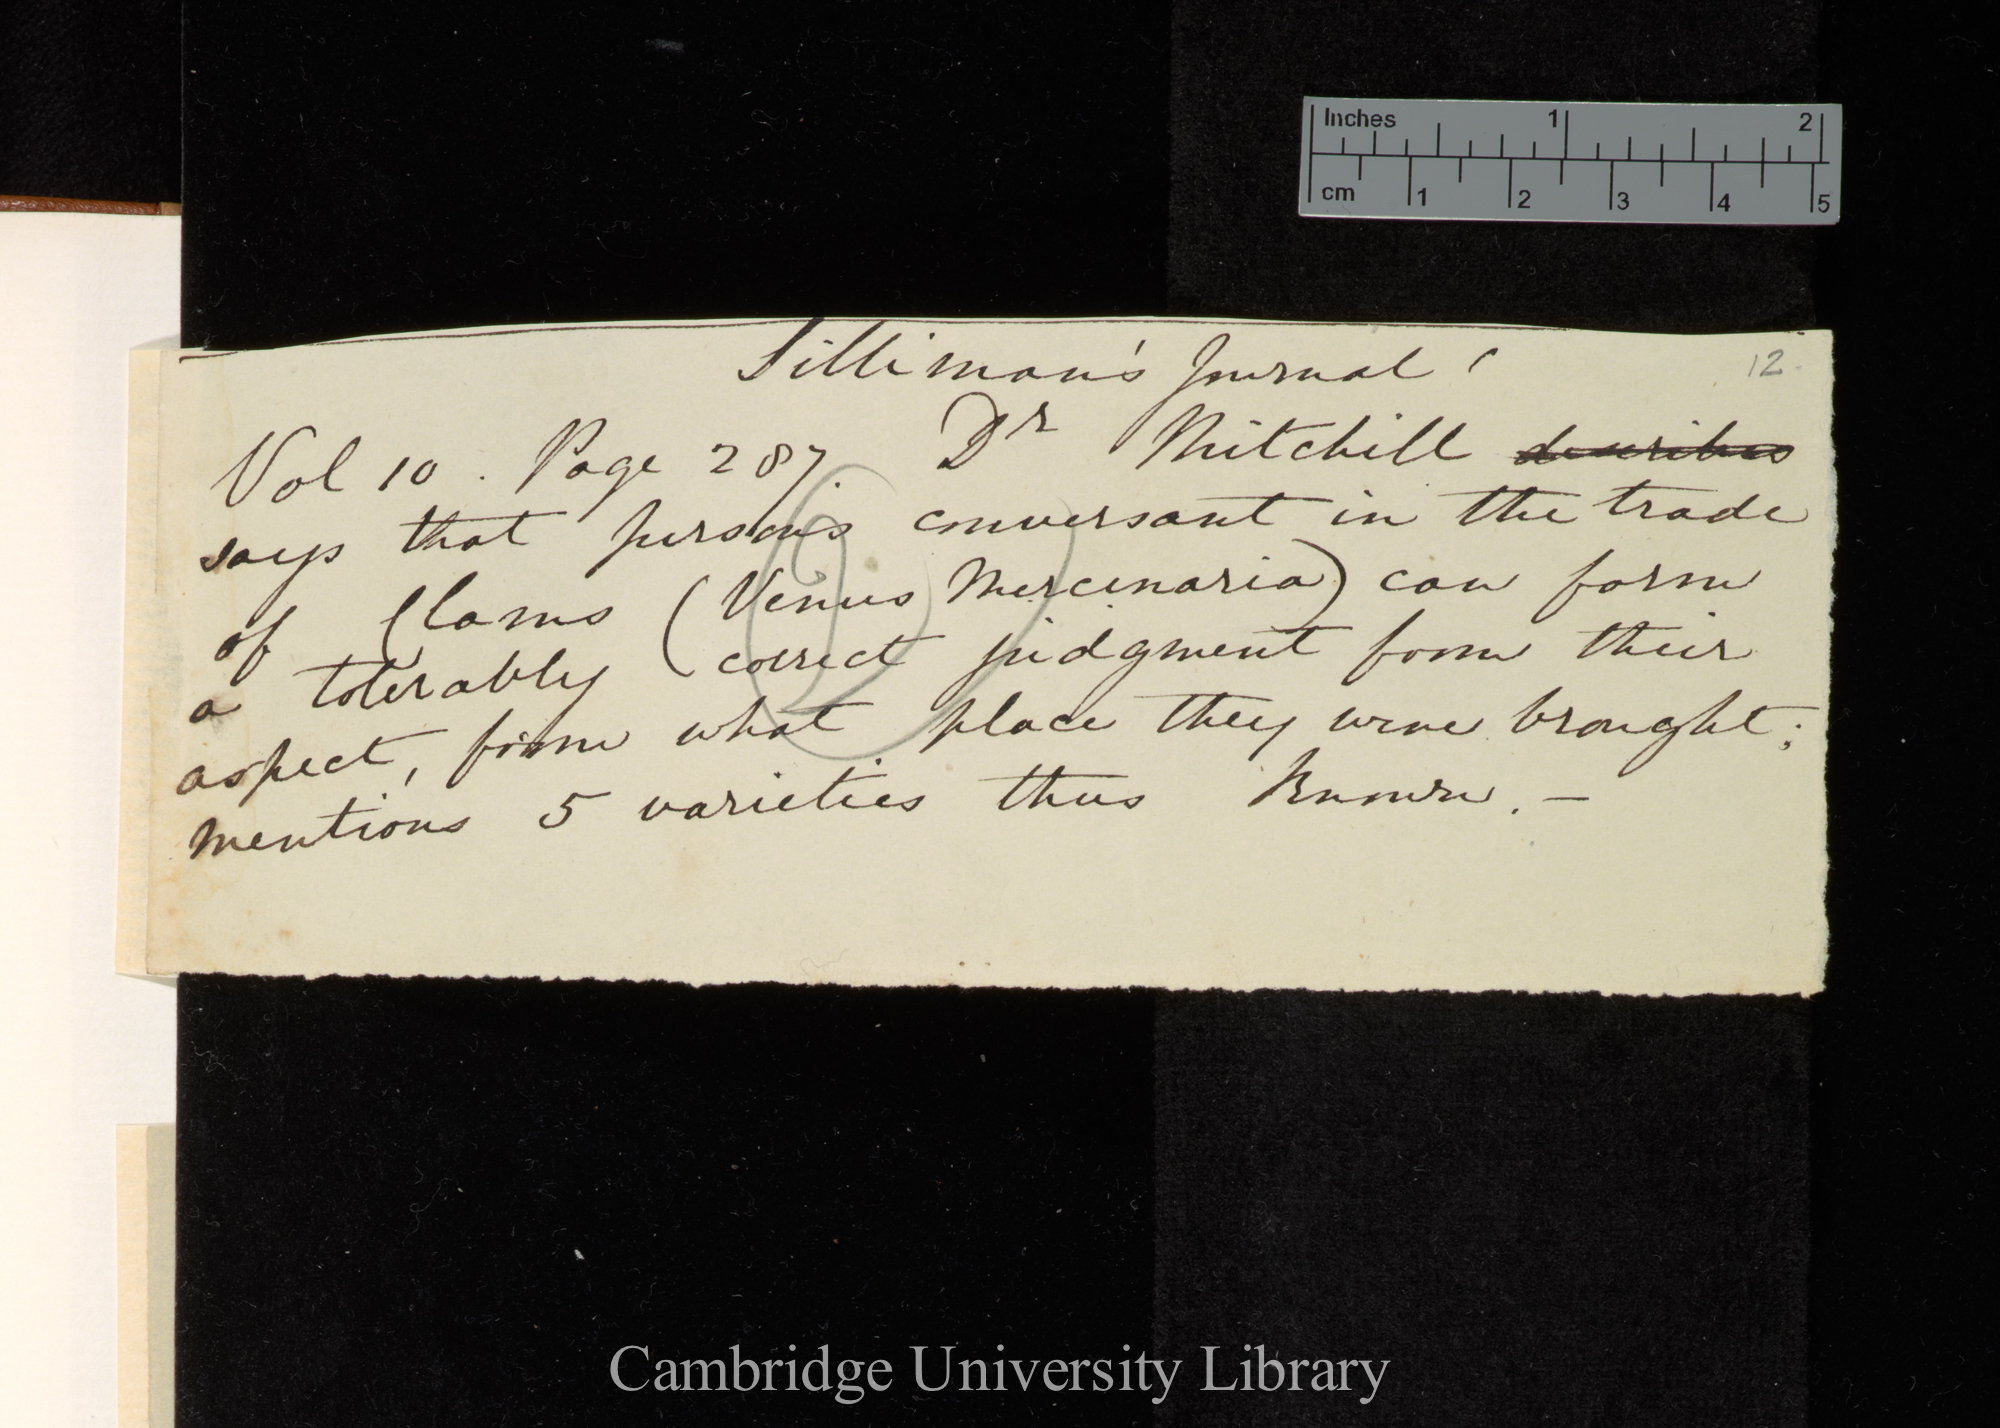 Inches 1 2
cm 1 2 3 4 5
Silliman's Journal
12.
Vol 10. Page 287. Dr Mitchill describes
says that persons conversant in the trade
of Clams (Venus Mercenaria) can form
a tolerably correct judgment from their
aspect, from what place they were brought;
mentions 5 varieties thus known. —
2
Cambridge University Library